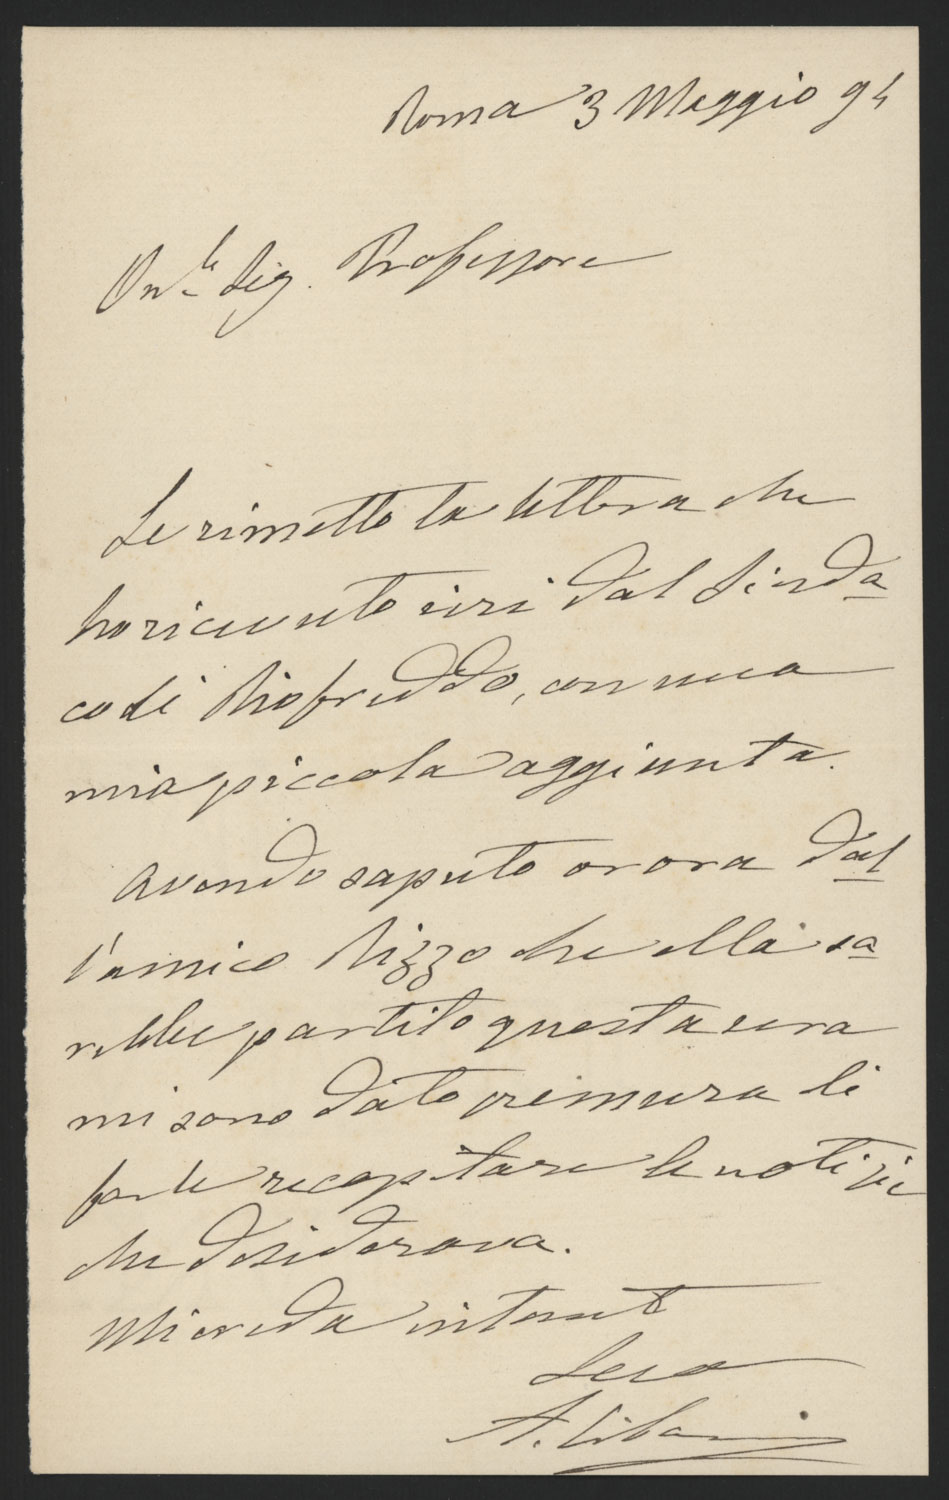 Roma 3 Maggio 94
On.le Sig. Professore
Le rimetto la lettera che
ho ricevuto ieri dal Sinda
co di Riofreddo, con una
mia piccola aggiunta.
Avendo saputo or ora dal
l'amico Rizzo che ella sa
rebbe partito questa sera
mi sono dato premura di
farle recapitare le notizie
che desiderava.
Mi creda intanto
Suo
A.